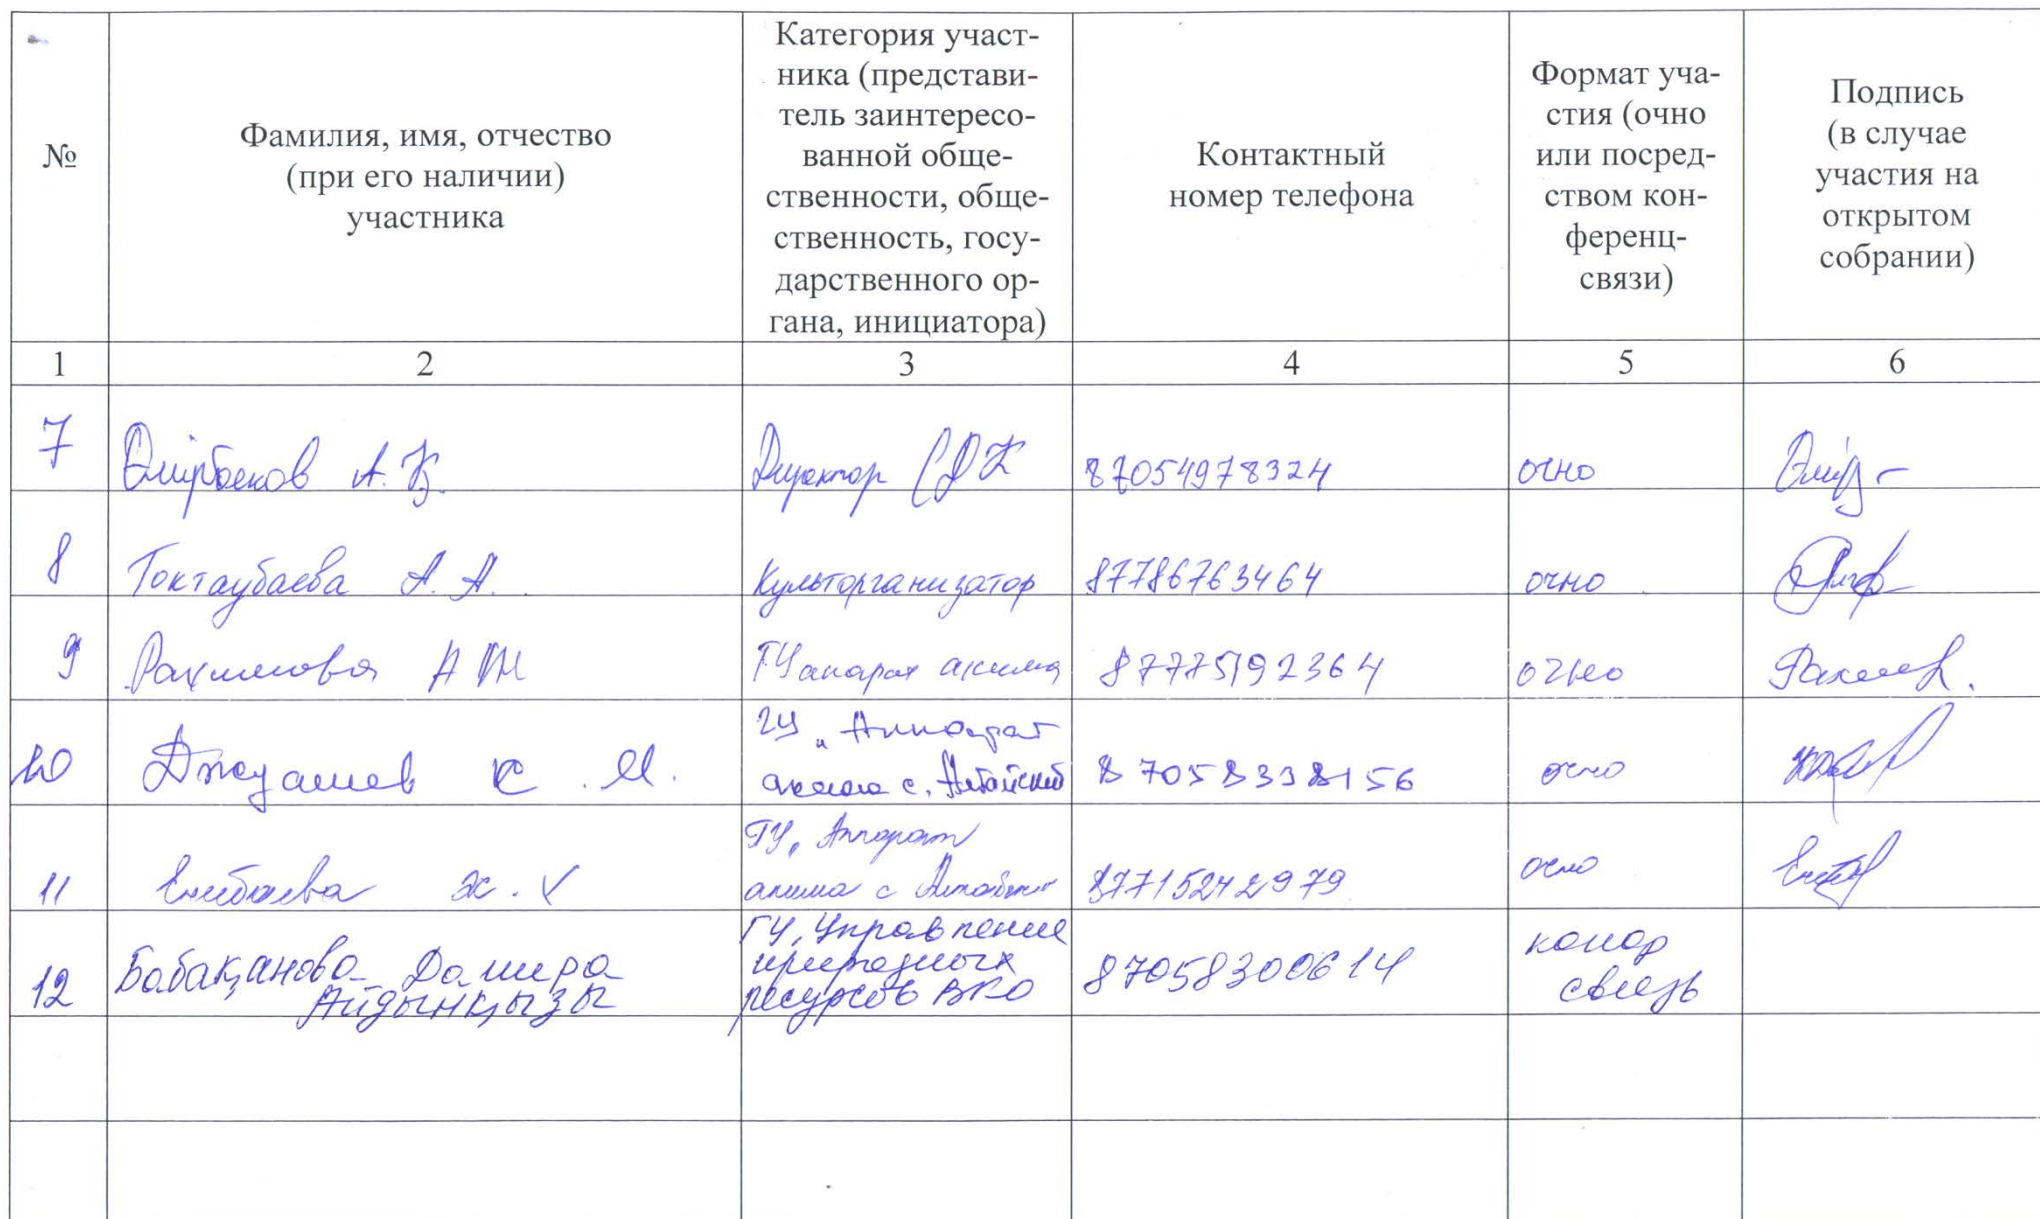 №
Фамилия, имя, отчество
(при его наличии)
участника
Категория участ-
ника (представи-
тель заинтересо-
ванной обще-
ственности, обще-
ственность, госу-
дарственного ор-
гана, инициатора)
Контактный
номер телефона
Формат уча-
стия (очно
или посред-
ством кон-
ференц-
связи)
Подпись
(в случае
участия на
открытом
собрании)
1 2 3 4 5 6
7 Өмірбеков А. Қ. Директор СДК 87054978324 очно
8 Токтаубаева А. А. Культорганизатор 87786763464 очно
9 Рахимова А М ГУ апарат акима 87775192364 очно
10 Джуашев К. М. ГУ "Аппарат
акима с. 87058338156 очно
11 Ж. ГУ, Аппарат
акима с 87715242979 очно
12 Бабақанова Дамира
Айдынқызы
ГУ, Управление
природных
ресурсов ВКО
87058300614
конф
связь